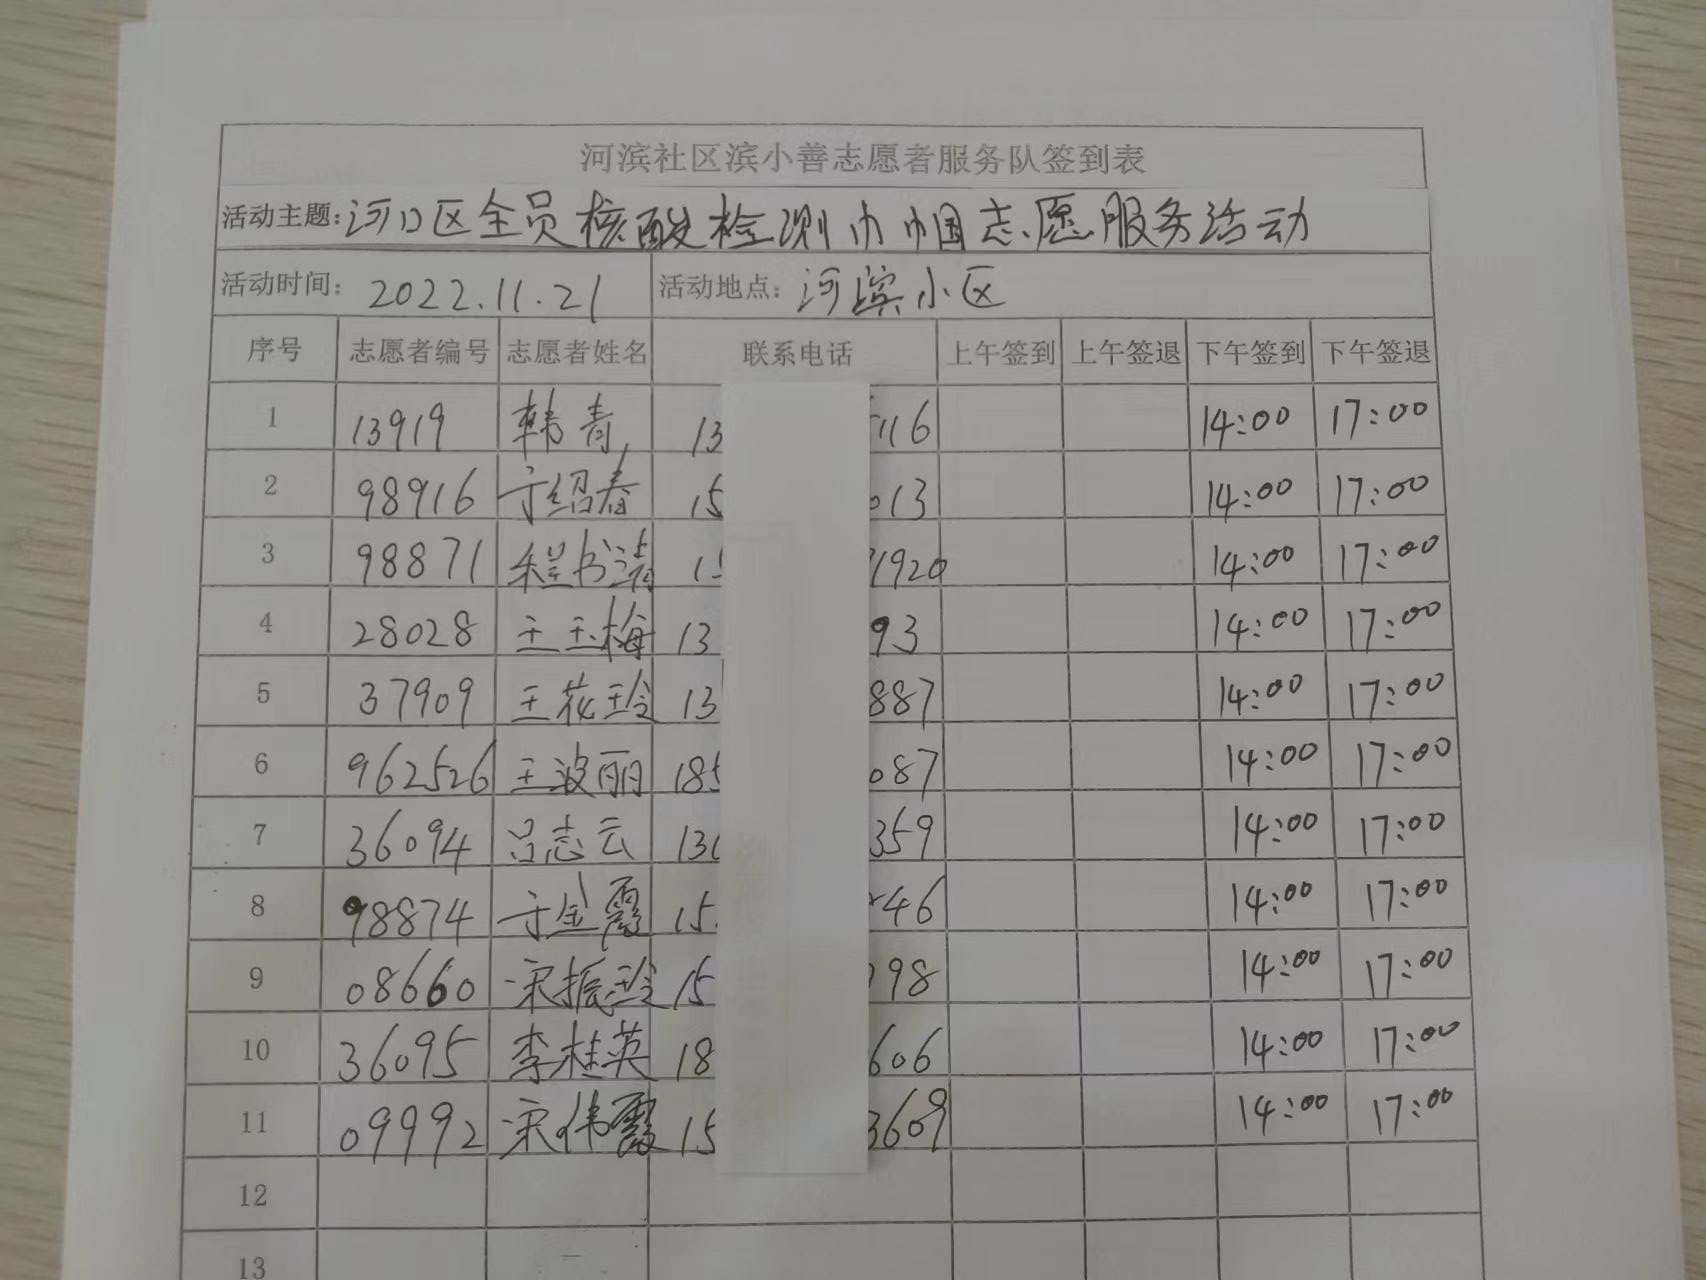 河滨社区滨小善志愿者服务队签到表
活动主题:河口区全员核酸检测巾帼志愿服务活动
活动时间: 2022.11.21 活动地点: 河滨小区
序号 志愿者编号 志愿者姓名 联系电话 上午签到 上午签退 下午签到 下午签退
1 13919 韩青 13 116 14:00 17:00
2 98916 于绍春 15 013 14:00 17:00
3 98871 程书清 15 1920 14:00 17:00
4 28028 王玉梅 13 93 14:00 17:00
5 37909 王花玲 13 887 14:00 17:00
6 962526 王波丽 185 087 14:00 17:00
7 36094 吕志云 130 359 14:00 17:00
8 98874 于金霞 15 46 14:00 17:00
9 08660 宋振玲 15 98 14:00 17:00
10 36095 李桂英 18 606 14:00 17:00
11 09992 宋伟霞 15 3609 14:00 17:00
12
13